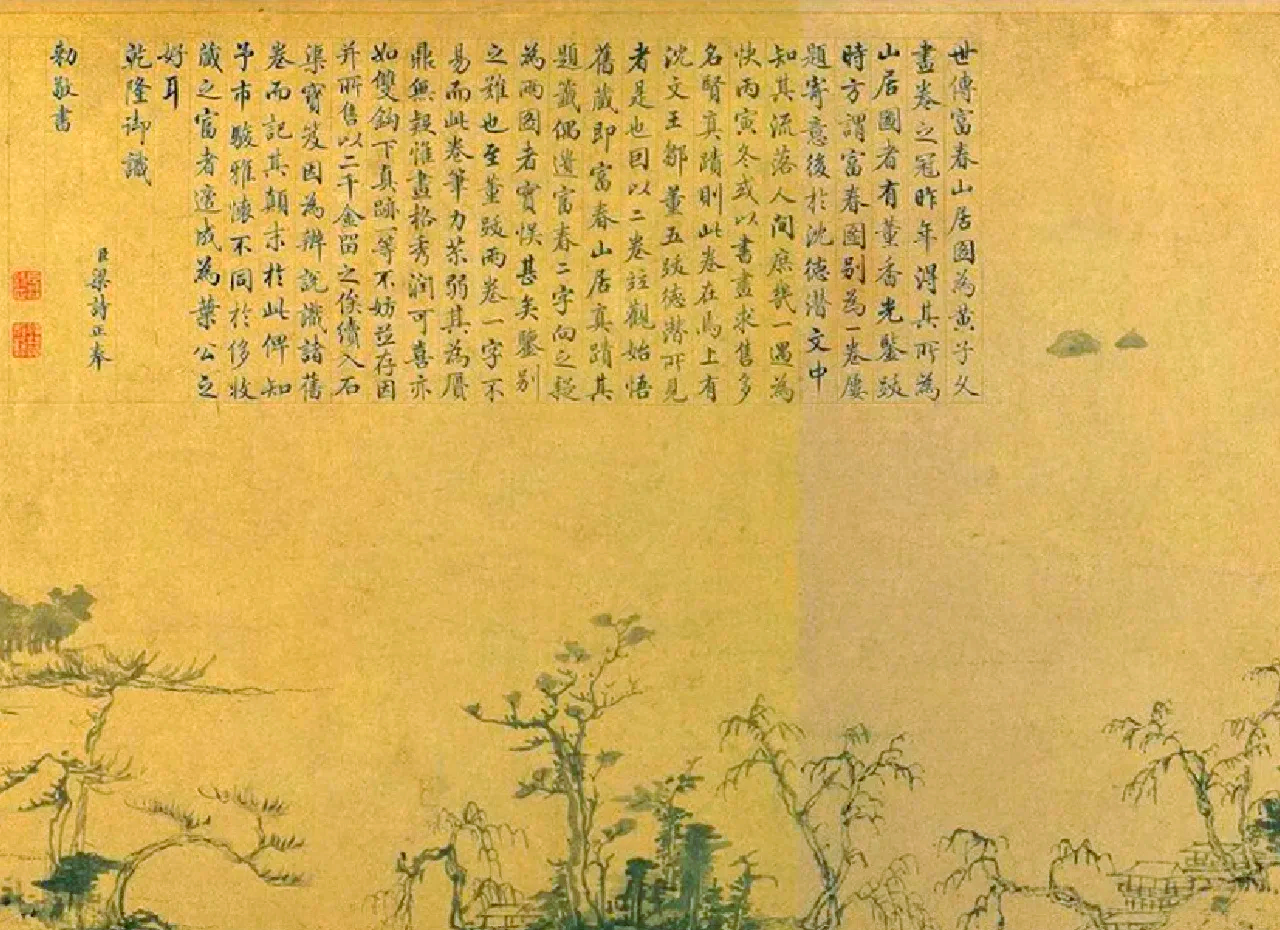 世傳富春山居圖為黃子久
畫卷之冠昨年得其所為
山居圖者有董香光鑒跋
時方謂富春圖别為一卷屢
題寄意後於沈德潛文中
知其流落人間庶幾一遇為
快丙寅冬或以書畫求售多
名賢真蹟則此卷在焉上有
沈文王鄒董五跋德潛所見
者是也因以二卷並觀始悟
舊藏即富春山居真蹟其
題籤偶遺富春二字向之疑
為兩圖者實悮甚矣鑒别
之難也至董跋兩卷一字不
易而此卷筆力苶弱其為贗
鼎無疑惟畫格秀潤可喜亦
如雙鈎下真跡一等不妨並存因
并所售以二千金留之俟續入石
渠寶笈因為辨說識諸舊
卷而記其顛末於此俾知
予市駿雅懷不同於侈收
藏之富者遽成為葉公之
好耳
乾隆御識
臣梁詩正奉
勅敬書